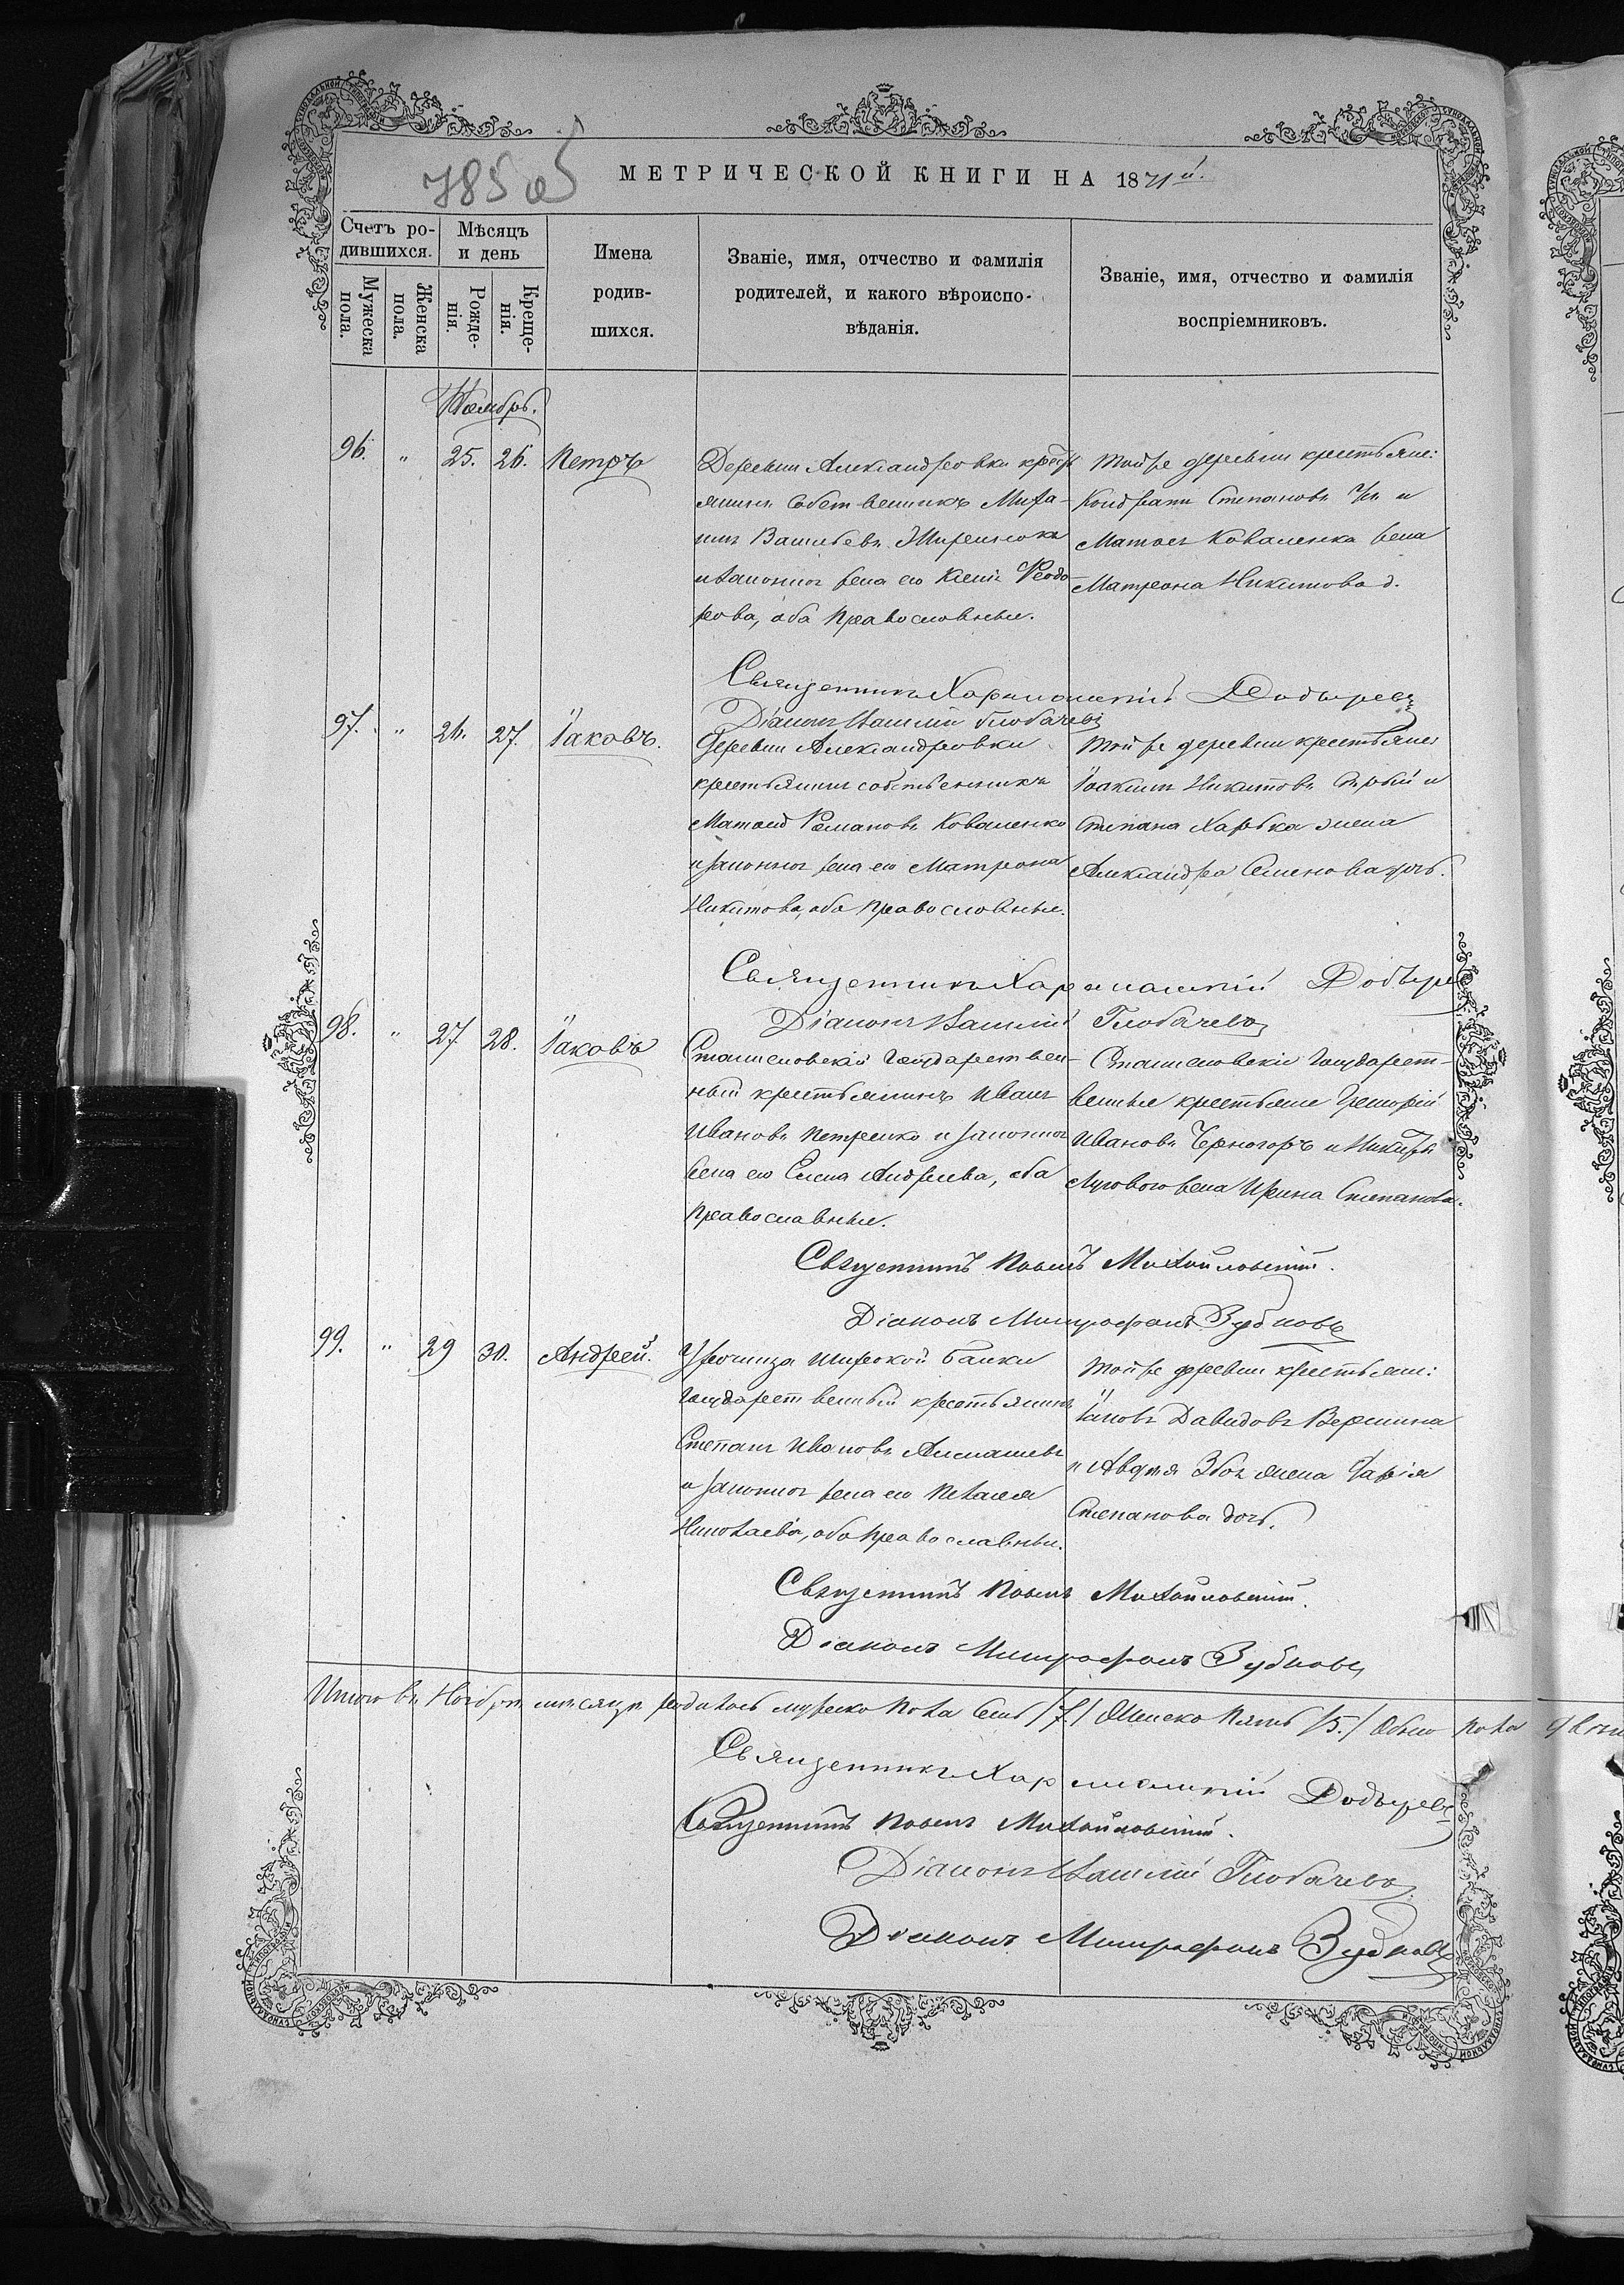 785 об
МЕТРИЧЕСКОЙ КНИГИ НА 1871й.
Счетъ ро-
дившихся.
Мѣсяцъ
и день
Мужеска
пола.
Женска
пола.
Рожде-
нія.
Креще-
нія.
Имена
родив-
шихся.
Званіе, имя, отчество и фамилія
родителей, и какого вѣроиспо-
вѣданія.
Званіе, имя, отчество и фамилія
воспріемниковъ.
Ноябрь.
96. " 25. 26. Петръ
Деревни Александровки кресть
янинъ собственникъ Миха-
илъ Васильевъ
и законная жена его Ксенія Феодо-
рова, оба православные.
Тойже деревни крестьяне:
Кондратъ Степановъ и
Матвея Коваленка жена
Матрона Никитова д.
Священникъ Харалампій
Діаконъ Василій Глобачевъ
97. " 26. 27. Іаковъ.
Деревни Александровки
крестьянинъ собственникъ
Матвей Романовъ Коваленко
и законная жена его Матрона
Никитова, оба православные.
Тойже деревни крестьяне:
Іоакимъ Никитовъ и
Степана Харька жена
Александра Семенова дочь.
Священникъ Харалампій
Діаконъ Василій Глобачевъ
98. " 27. 28. Іаковъ
Станиславскій государствен-
ный крестьянинъ Иванъ
Ивановъ Петренко и законная
жена его Елена Андреева, оба
православные.
Станиславскіе государст-
венные крестьяне Григорій
Ивановъ Черногоръ и Никиты
Луговаго жена Ирина Степанова.
Священникъ Павелъ Михайловскій.
Діаконъ Митрофанъ Зубковъ
99. " 29 30. Андрей.
Урочища Широкой Балки
государственный крестьянинъ
Степанъ Ивановъ
и законная жена его Пелагея
Николаева, оба православные.
Тойже деревни крестьяне:
Іаковъ Давидовъ Вершина
и жена Дарія
Степанова дочь.
Священникъ Павелъ Михайловскій.
Діаконъ Митрофанъ Зубковъ
Итого въ Ноябрѣ мѣсяцѣ родилось мужеска пола семь /7./ Женска пять /5./ Обоего пола
Священникъ Харалампій
Священникъ Павелъ Михайловскій.
Діаконъ Василій Глобачевъ
Діаконъ Митрофанъ Зубковъ